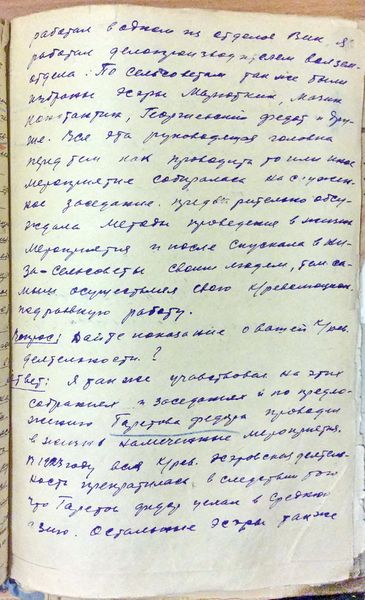 работал в одном из отделов Вик. Я
работал делопроизводителем
отдела. По сельсоветам также были
избраны эсеры
Константин, Георгиевский Федот и дру-
ие. Вся эта руководящая головка
перед тем как проводить то или иное
мероприятие собиралась на
ное заседание. предварительно обсу-
ждала методы проведения в жизнь
мероприятия и после спускала в ни-
за-сельсоветы своим людям, тем са-
мым осуществляя свою к/революцион.
подрывную работу.
Вопрос: Дайте показание о вашей к/рев.
деятельности?
Ответ: Я также участвовал на этих
собраниях и заседаниях и по предло-
жению Федора проводил
в жизнь намеченные мероприятия.
В 1923 году вся к/рев. эсеровская деятель-
ность прекратилась в следствии того
что Федор уехал в Среднюю
Азию. Остальные эсеры также